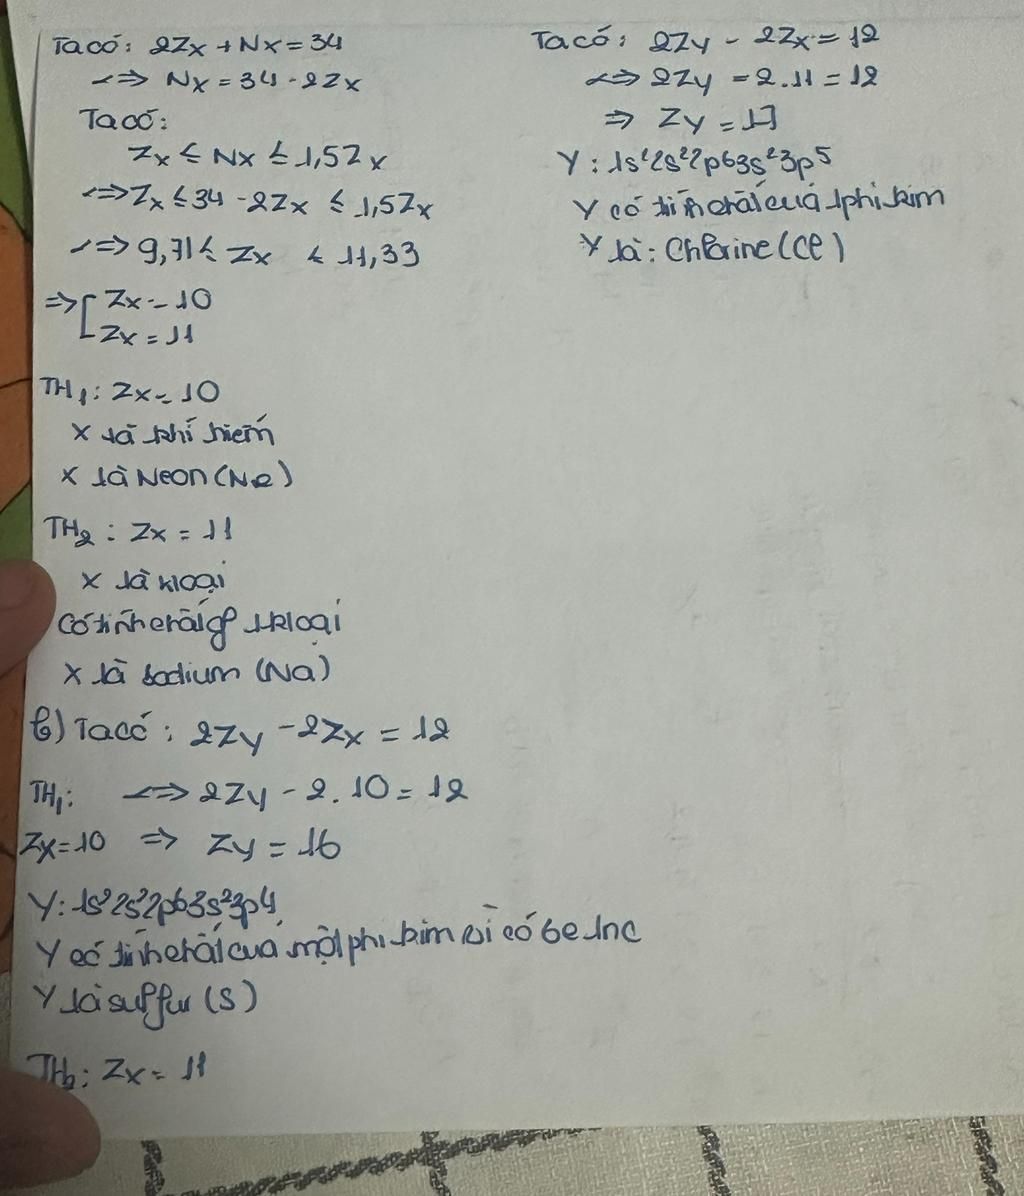 Ta có: 2Zx + Nx = 34
<=> Nx = 34 - 2Zx
Ta có:
Zx ≤ Nx ≤ 1,5Zx
<=> Zx ≤ 34 - 2Zx ≤ 1,5Zx
<=> 9,71 ≤ Zx ≤ 11,33
=> [ Zx = 10
Zx = 11
TH1: Zx = 10
X là khí hiếm
X là Neon (Ne)
TH2: Zx = 11
X là kloại
Có tính chất 1 kloại
X là sodium (Na)
b) Ta có: 2Zy - 2Zx = 12
TH1: <=> 2Zy - 2.10 = 12
Zx = 10 => Zy = 16
Y: 1s²2s²2p⁶3s²3p⁴
Y có tính chất của một phi kim vì có 6e lnc
Y là sulfur (S)
TH2: Zx = 11
Ta có: 2Zy - 2Zx = 12
<=> 2Zy - 2.11 = 12
=> Zy = 17
Y: 1s²2s²2p⁶3s²3p⁵
Y có tính chất của 1 phi kim
Y là: Chlorine (Cl)